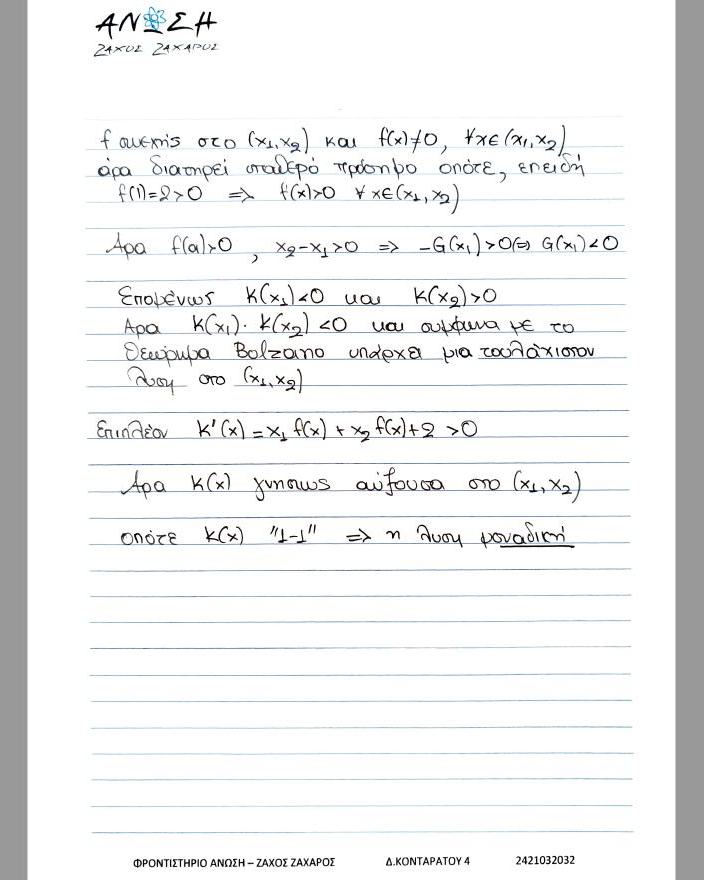 ΑΝΩΣΗ
ΖΑΧΟΣ ΖΑΧΑΡΟΣ
f συνεχής στο (x₁,x₂) και f(x)≠0, ∀x∈(x₁,x₂)
άρα διατηρεί σταθερό πρόσημο οπότε, επειδή
f(1)=2>0 ⇒ f(x)>0 ∀x∈(x₁,x₂)
Άρα f(a)>0, x₂-x₁>0 ⇒ -G(x₁)>0⇔ G(x₁)<0
Επομένως K(x₁)<0 και K(x₂)>0
Άρα K(x₁)·K(x₂)<0 και σύμφωνα με το
Θεώρημα Bolzano υπάρχει μια τουλάχιστον
λύση στο (x₁,x₂)
Επιπλέον K'(x)=x₁f(x)+x₂f(x)+2>0
Άρα K(x) γνησίως αύξουσα στο (x₁,x₂)
οπότε K(x) "1-1" ⇒ η λύση μοναδική
ΦΡΟΝΤΙΣΤΗΡΙΟ ΑΝΩΣΗ – ΖΑΧΟΣ ΖΑΧΑΡΟΣ Δ.ΚΟΝΤΑΡΑΤΟΥ 4 2421032032